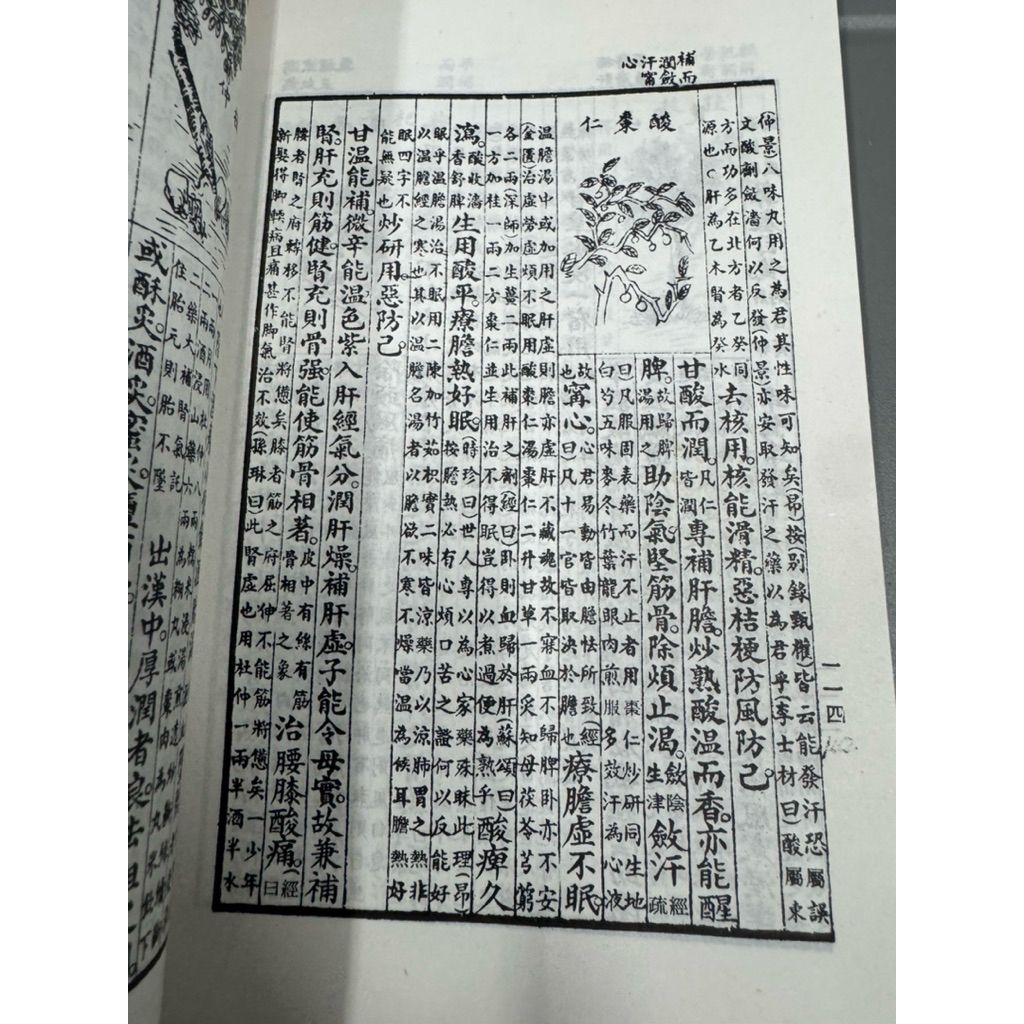 補而
潤斂
汗甯
心
酸棗仁
(仲景)八味丸用之為君其性味可知矣(昂)按(別錄甄權)皆云能發汗恐屬誤
文酸劑斂濇何以反發(仲景)亦安取發汗之藥以為君乎(李士材曰)酸屬東
方而功多在北方者乙癸同
源也○肝為乙木腎為癸水
去核用。核能滑精。惡桔梗防風防己。
甘酸而潤。凡仁皆潤專補肝膽。炒熟酸溫而香。亦能醒
脾。故歸脾湯用之助陰氣。堅筋骨。除煩止渴。斂陰生津斂汗經疏
曰凡服固表藥而汗不止者用棗仁炒研同生地
白芍五味麥冬竹葉龍眼肉煎服多效汗為心液
故也甯心。心君易動皆由膽怯所致(經曰)凡十一官皆取決於膽也療膽虛不眠。
溫膽湯中或加用之肝虛則膽亦虛肝不藏魂故不寐血不歸脾臥亦不安
(金匱)治虛勞虛煩不眠用酸棗仁湯棗仁二升甘草一兩炙知母茯苓芎藭
各二兩(深師)加生薑二兩此補肝之劑(經曰)臥則血歸於肝(蘇頌曰)
一方加桂一兩二方棗仁並生用治不得眠豈得以煮過便為熟乎
酸痺久
瀉。酸收濇香舒脾生用酸平。療膽熱好眠。(時珍曰)世人專以為心家藥殊昧此理(昂)
按膽熱必有心煩口苦之證何以反能好
眠乎溫膽湯治不眠用二陳加竹茹枳實二味皆涼藥乃以涼肺胃之熱非
以溫膽經之寒也其以溫膽名湯者以膽欲不寒不燥當溫為候耳膽熱好
眠四字不能無疑也炒研用。惡防己。
甘溫能補。微辛能溫。色紫入肝經氣分。潤肝燥。補肝虛。子能令母實。故兼補
腎。肝充則筋健。腎充則骨強。能使筋骨相著。皮中有絲有筋骨相著之象治腰膝酸痛。(經曰
腰者腎之府轉移不能腎將憊矣膝者筋之府屈伸不能筋將憊矣一少年
新娶得脚軟病且痛甚作脚氣治不效(孫琳曰)此腎虛也用杜仲一兩半酒半水
一一四
仲
出漢中。厚潤者良。去
或酥炙。酒炙。